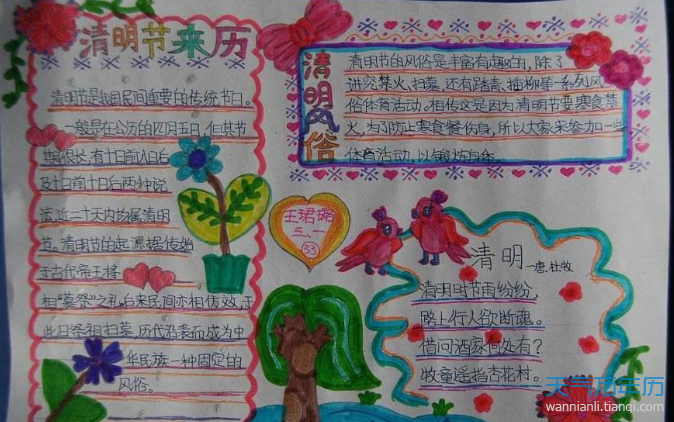 清明节来历
清明节是我国民间重要的传统节日。
一般是在公历的四月五日，但其节
期很长，有十日前八日后
及十日前十日后两种说
法，近二十天内均属清明
节。清明节的起源，据传始
于古代帝王将
相“墓祭”之礼，后来民间亦相仿效，于
此日祭祖扫墓，历代沿袭而成为中
华民族一种固定的
风俗。
清明风俗
清明节的风俗是丰富有趣的，除了
讲究禁火、扫墓，还有踏青、插柳等一系列风
俗体育活动。相传这是因为清明节要寒食禁
火，为了防止寒食餐伤身，所以大家来参加一些
体育活动，以锻炼身体。
王珺璐
三、一
33
清明
—唐.杜牧
清明时节雨纷纷，
路上行人欲断魂。
借问酒家何处有？
牧童遥指杏花村。
天气万年历
wannianli.tianqi.com